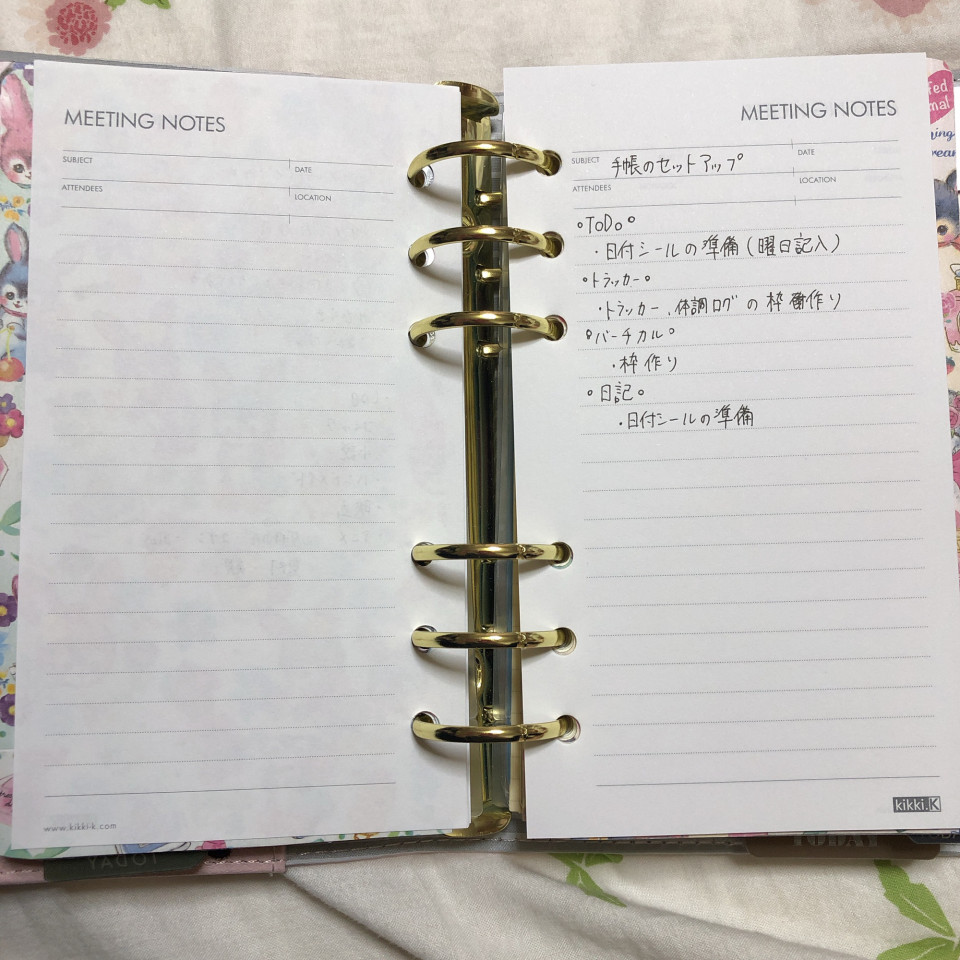 MEETING NOTES
SUBJECT
DATE
ATTENDEES
LOCATION
www.kikki-k.com
MEETING NOTES
SUBJECT 手帳のセットアップ
DATE
ATTENDEES
LOCATION
°ToDo°
・日付シールの準備(曜日記入)
°トラッカー°
・トラッカー、体調ログの枠作り
°バーチカル°
・枠作り
°日記°
・日付シールの準備
kikki.K
TODAY
TODAY